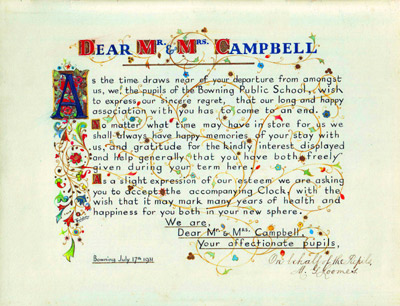 DEAR MR. & MRS. CAMPBELL
As the time draws near of your departure from amongst
us, we, the pupils of the Bowning Public School, wish
to express our sincere regret, that our long and happy
association with you has to come to an end.
No matter what time may have in store for us we
shall always have happy memories of your stay with
us, and gratitude for the kindly interest displayed
and help generally that you have both freely
given during your term here.
As a slight expression of our esteem we are asking
you to accept the accompanying Clock with the
wish that it may mark many years of health and
happiness for you both in your new sphere.
We are,
Dear Mr. & Mrs. Campbell,
Your affectionate pupils,
On behalf of the Pupils
Bowning July 17th 1931